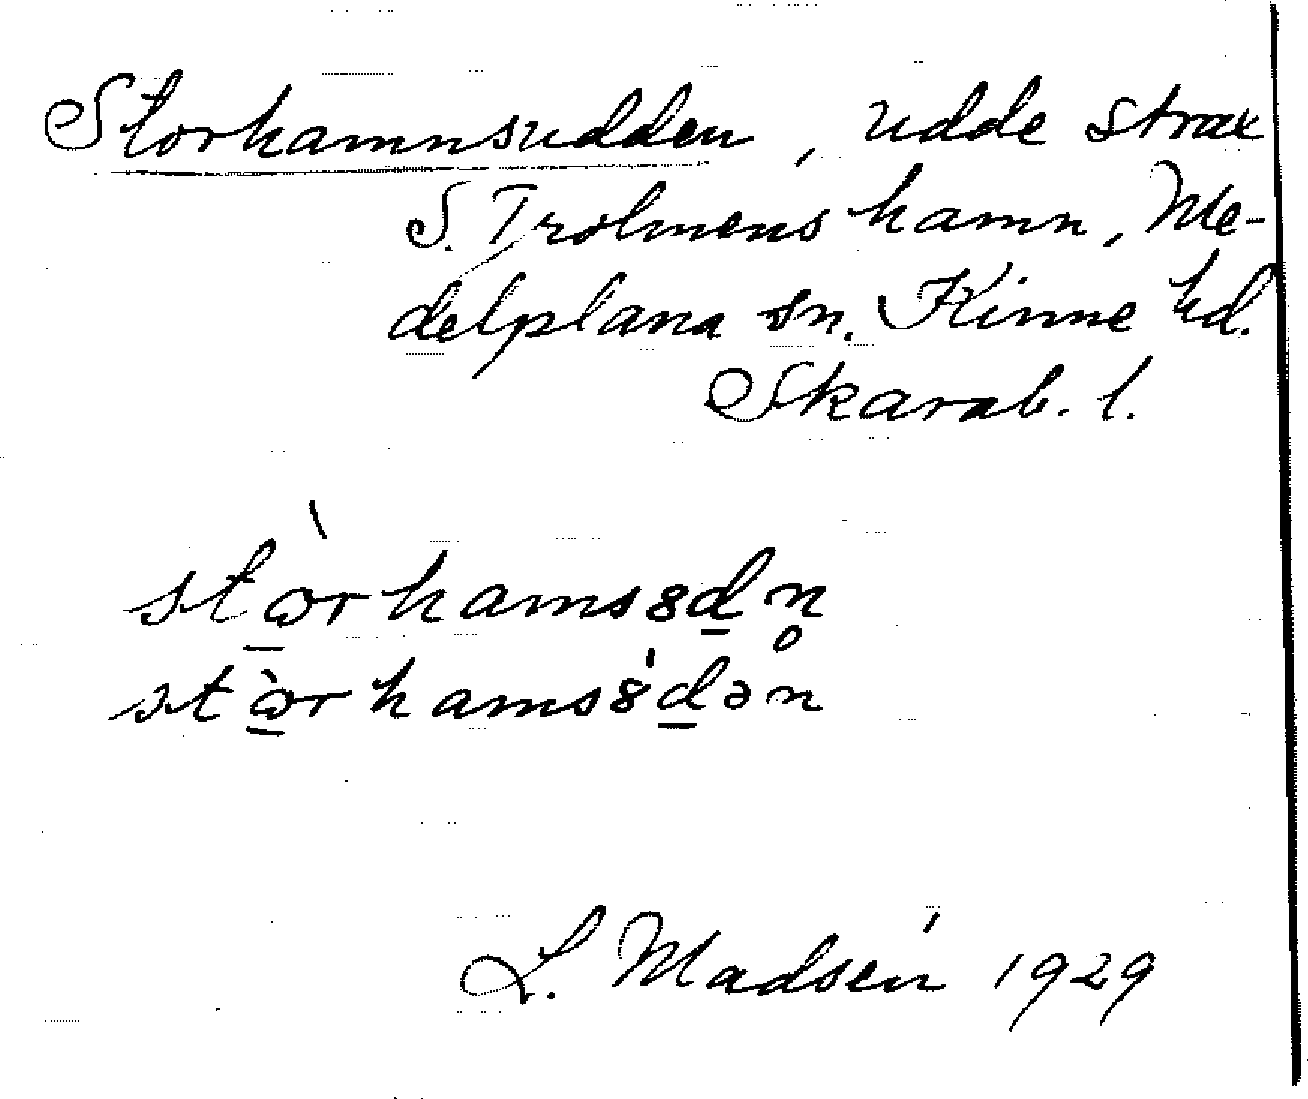 Storhamnsudden, udde strax
S. Trolmens hamn, Me-
delplana sn. Kinne hd.
Skarab. l.
stꞷ̀rhamsȣdn̥
stꞷ̀rhamsȣ́dən
L. Madsén 1929